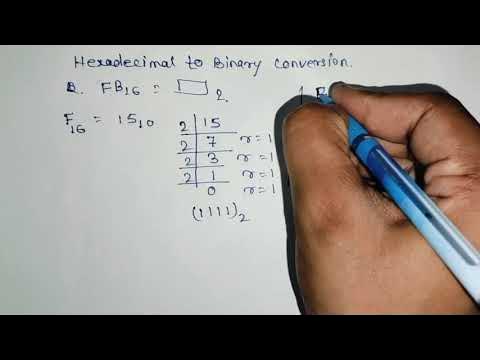 Hexadecimal to Binary Conversion.
Q. FB16 = 2.
F16 = 1510
2 15
2 7 r=1
2 3 r=1
2 1 r=1
0 r=1
(1111)2